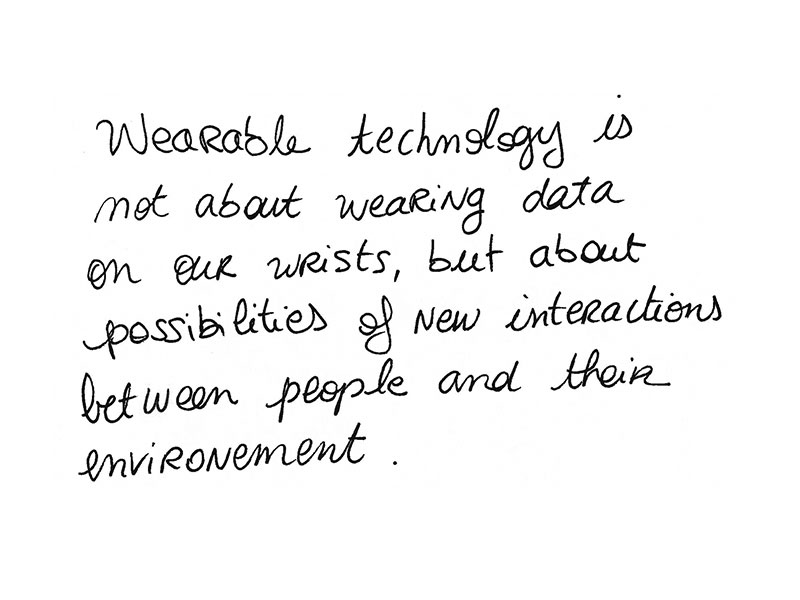 Wearable technology is
not about wearing data
on our wrists, but about
possibilities of new interactions
between people and their
environement.